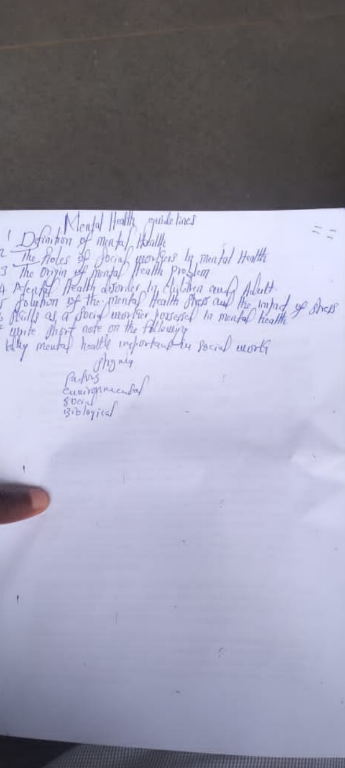 Mental Health guidelines
1 Definition of mental Health
2 The Roles of social workers in mental Health
3 The Origin of mental Health problem
4 Mental Health disorder in children and Adult
5 Solution of the mental Health stress and the impact of stress
6 skills as a social worker possessed in mental health
7 write short note on the following
Why mental health important in social work
stigma
environmental
social
Biological